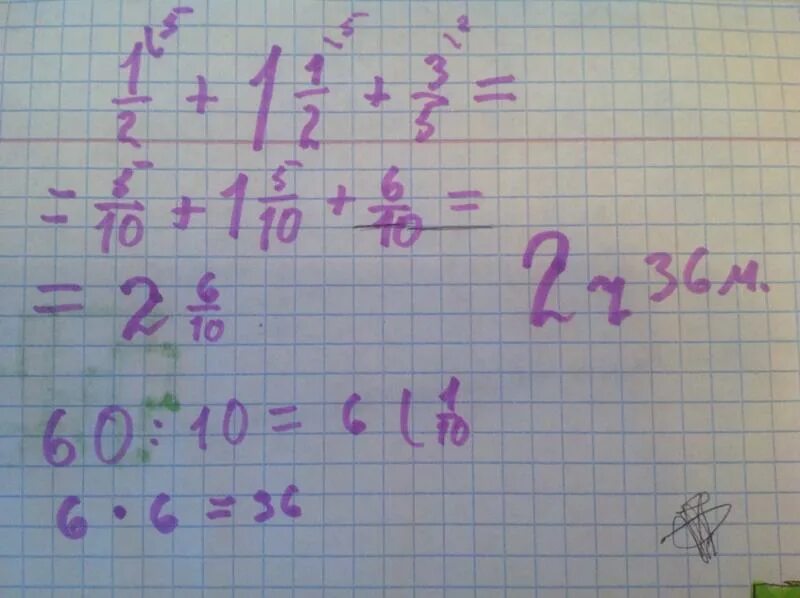 1/2 \5 + 1 1/2 \5 + 3/5 \2 =
= 5/10 + 1 5/10 + 6/10 =
= 2 6/10
2 ч 36 м.
60 : 10 = 6 ( 1/10
6 · 6 = 36